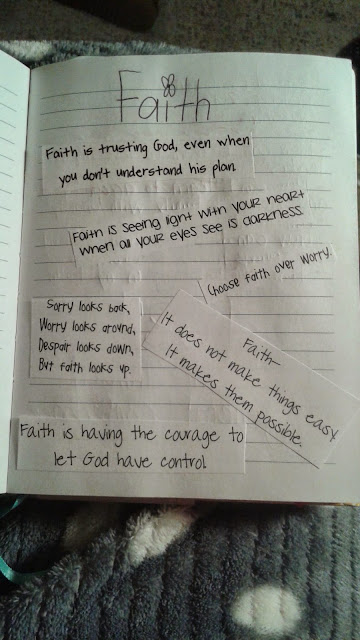 Faith
Faith is trusting God, even when
you don't understand his plan.
Faith is seeing light with your heart
when all your eyes see is darkness.
Choose faith over worry.
Sorry looks back,
Worry looks around,
Despair looks down,
But faith looks up.
Faith-
It does not make things easy
It makes them possible.
Faith is having the courage to
let God have control